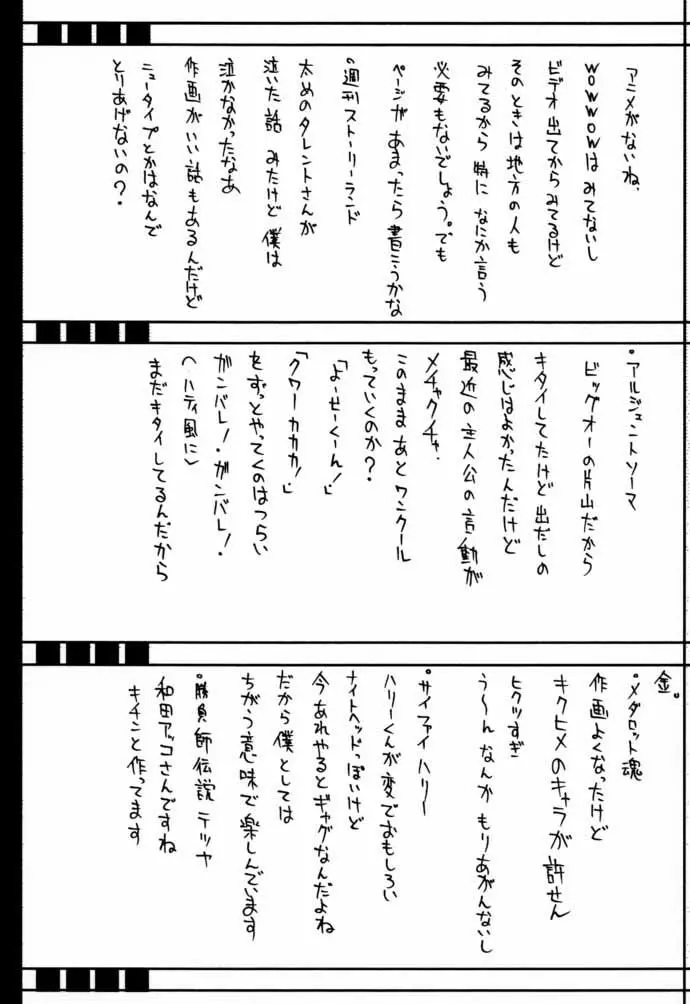 アニメがないね、
WOWWOWは みてないし
ビデオ 出てからみてるけど
そのときは地方の人も
みてるから 特に なにか言う
必要もないでしょう。でも
ページが あまったら 書こうかな
・週刊ストーリーランド
太めのタレントさんが
泣いた話 みたけど 僕は
泣かなかったなあ
作画がいい話もあるんだけど
ニュータイプとかはなんで
とりあげないの?・
・アルジェントソーマ
ビッグオーの片山だから
キタイしてたけど 出だしの
感じはよかったんだけど
最近の主人公の言動が
メチャクチャ.
このまま あと ワンクール
もっていくのか?・
「よーせーくーん!」
「クワーカカカ!」
をずっとやってくのはつらい
ガンバレ!・ガンバレ!・
(ハティ風に)
まだキタイしてるんだから
金。
・メダロット魂
作画よくなったけど
キクヒメのキャラが 許せん
ヒクツすぎ
う〜ん なんか もりあがんないし
・サイファイ ハリー
ハリーくんが変でおもしろい
ナイトヘッドっぽいけど
今 あれやるとギャグなんだよね
だから僕としては
ちがう意味で 楽しんでいます
・勝負師伝説 テツヤ
和田アッコさんですね
キチンと作ってます